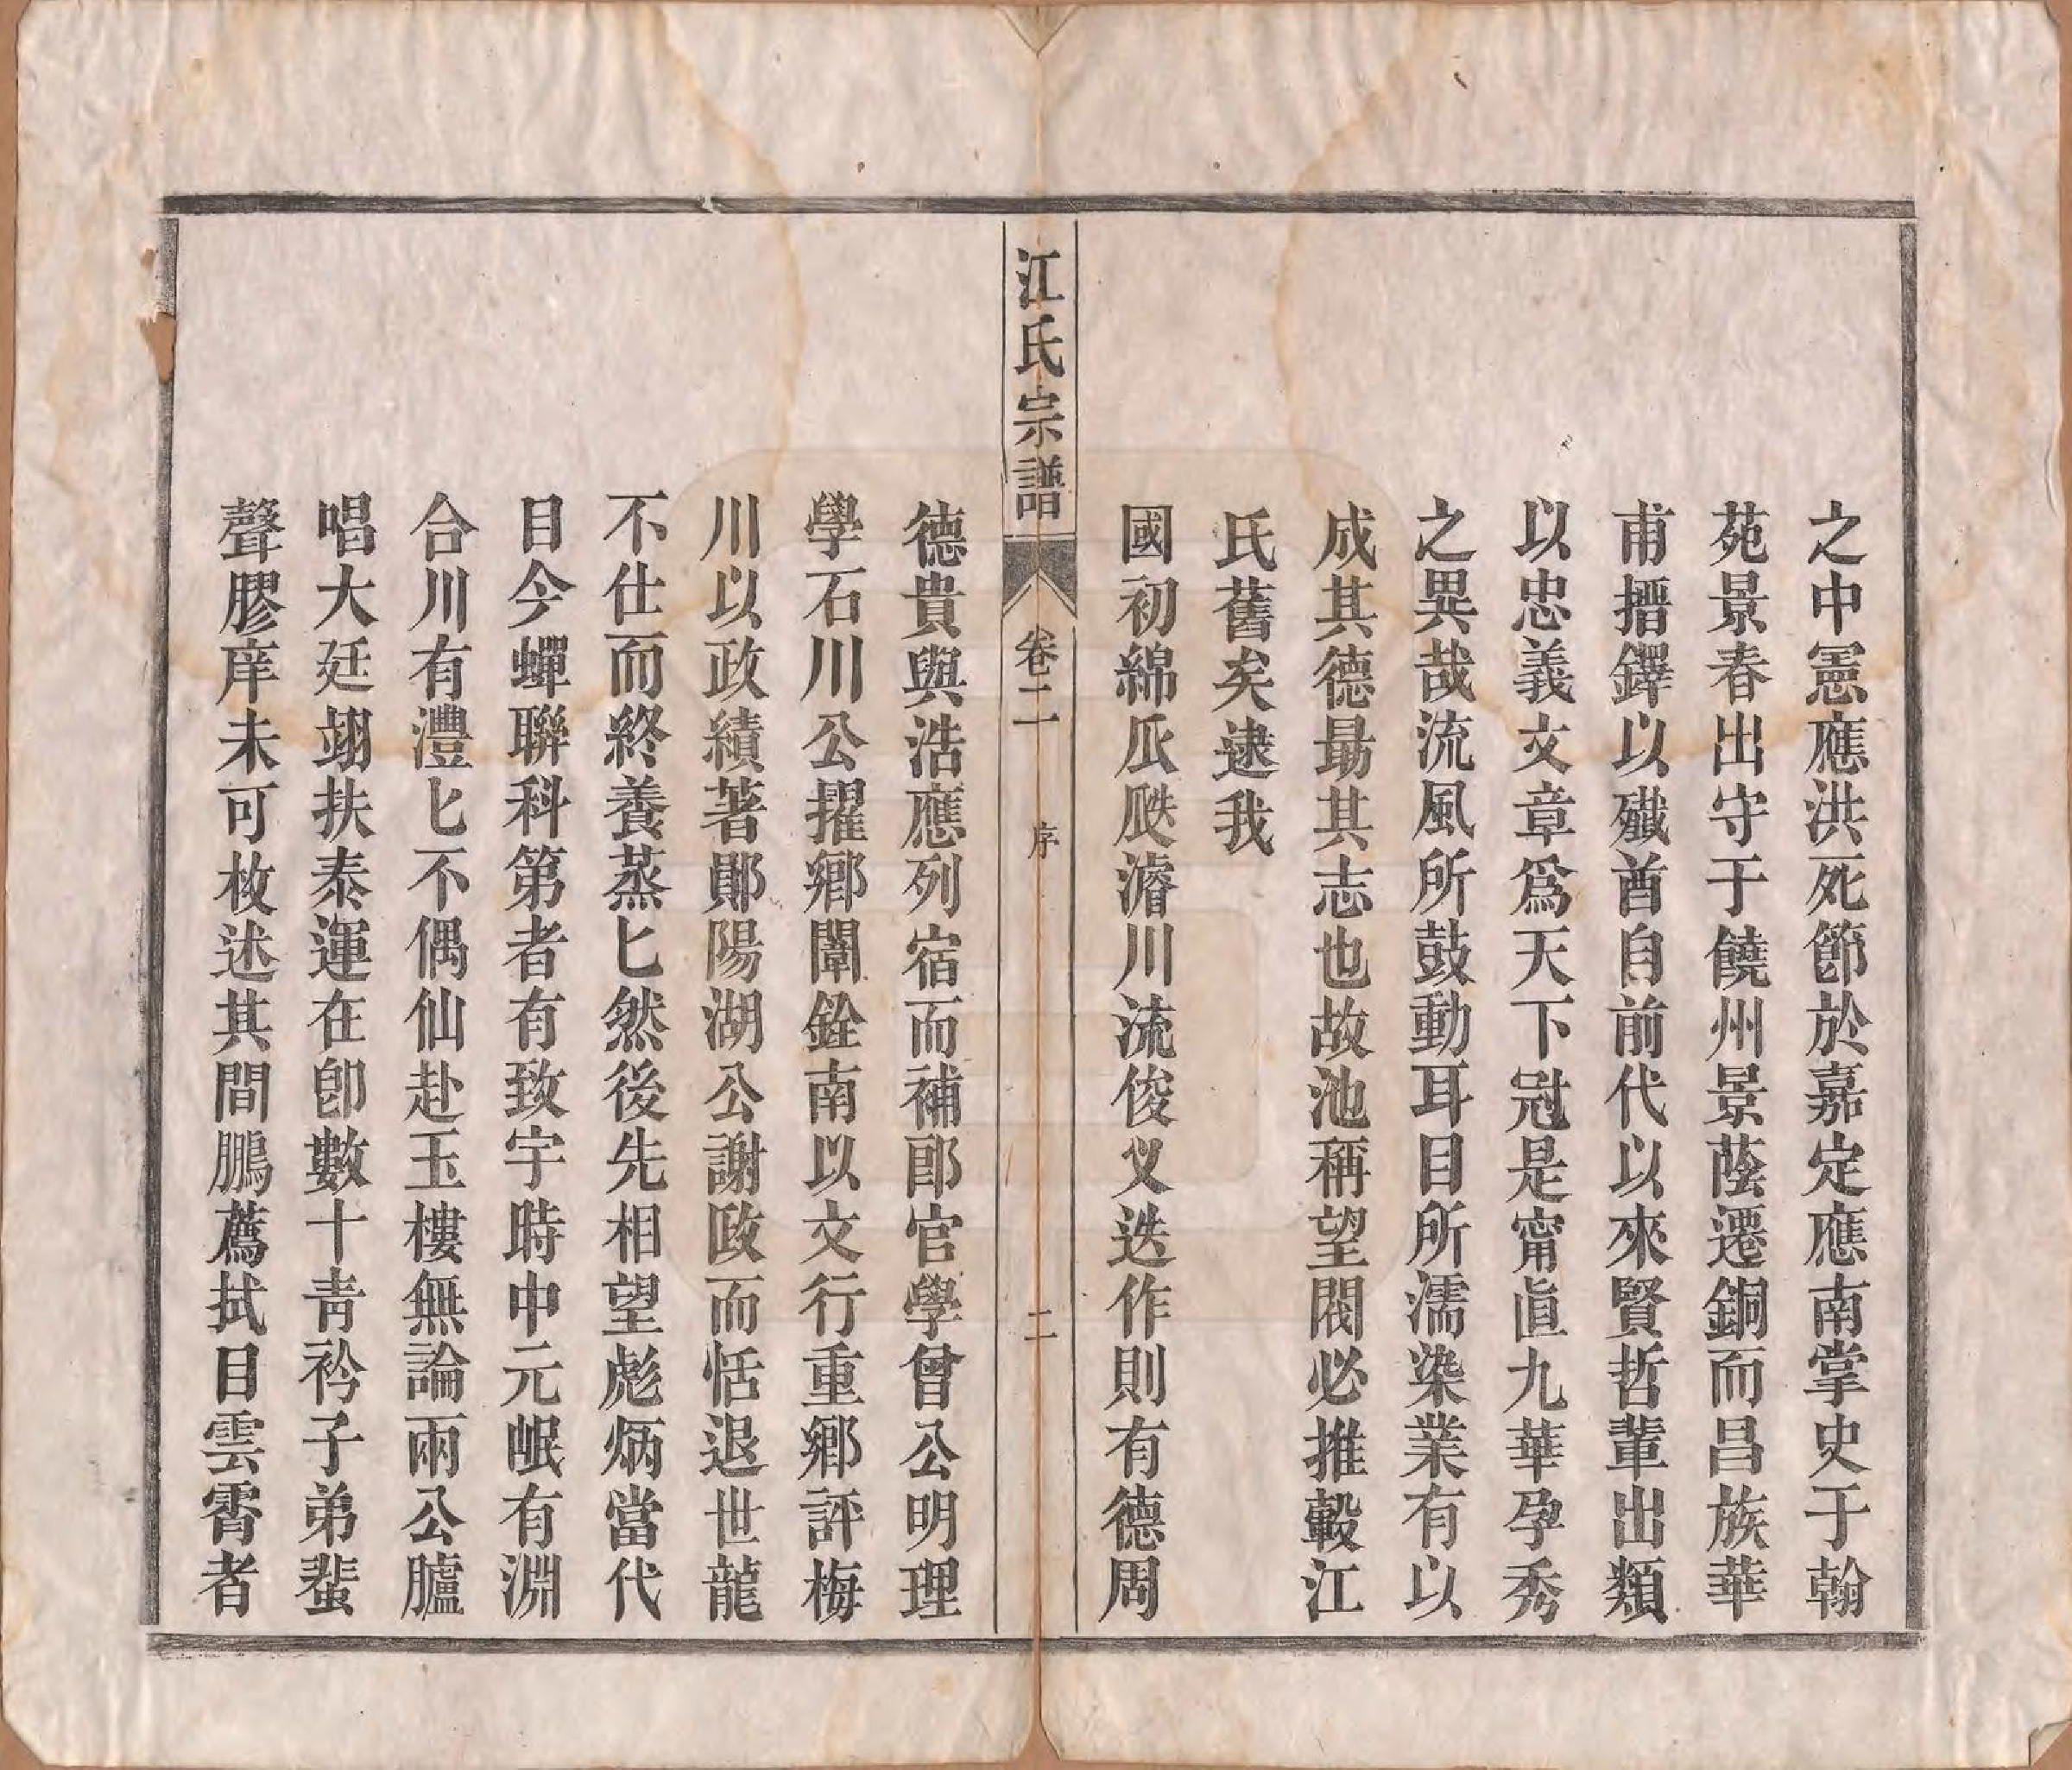 之中憲應洪死節於嘉定應南掌史于翰
苑景春出守于饒州景蔭遷銅而昌族華
甫搢鐸以殲酋自前代以來賢哲輩出類
以忠義文章爲天下冠是甯眞九華孕秀
之異哉流風所鼓動耳目所濡染業有以
成其德勗其志也故池稱望閥必推轂江
氏舊矣逮我
國初綿瓜瓞濬川流俊乂迭作則有德周
江氏宗譜
卷二
序
二
德貴與浩應列宿而補郎官學曾公明理
學石川公擢鄉闈銓南以文行重鄉評梅
川以政績著鄖陽湖公謝政而恬退世龍
不仕而終養蒸匕然後先相望彪炳當代
目今蟬聯科第者有致宇時中元岷有淵
台川有灃匕不偶仙赴玉樓無論兩公臚
唱大廷翊扶泰運在卽數十青衿子弟蜚
聲膠庠未可枚述其間鵬薦拭目雲霄者